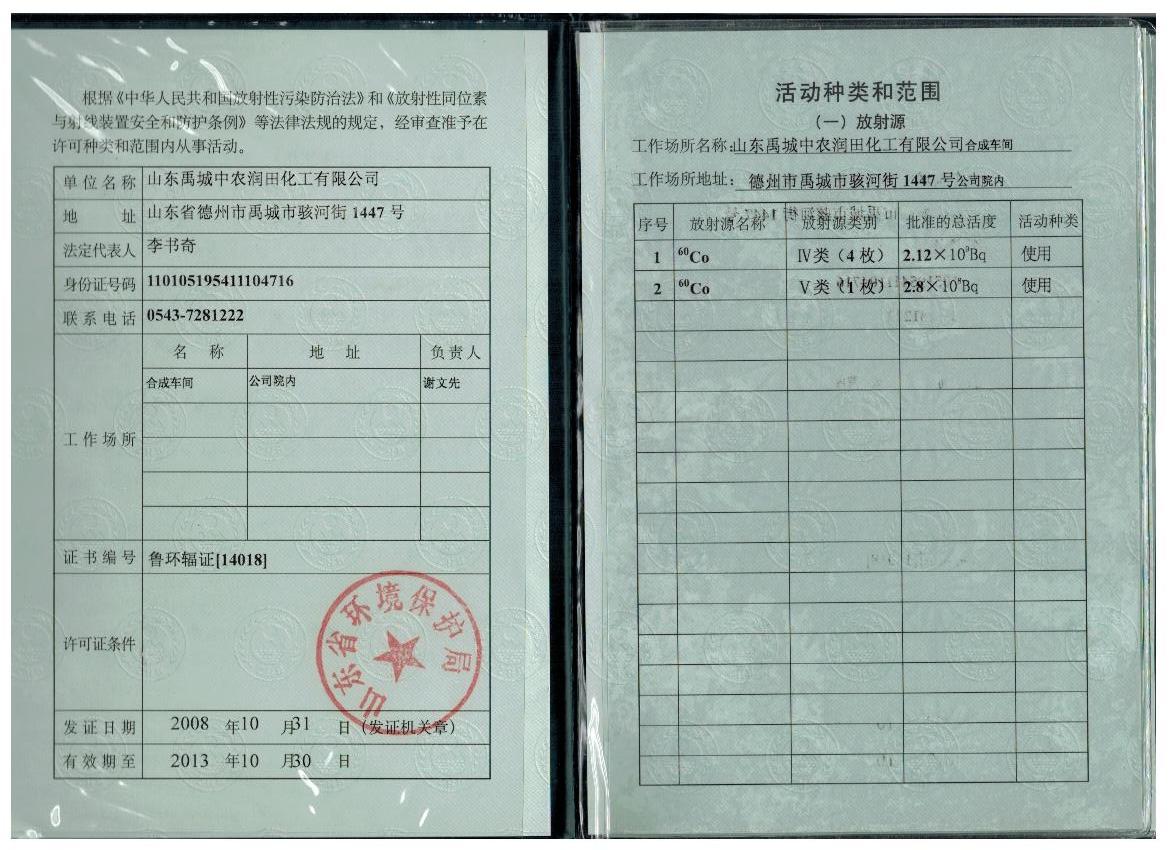 根据《中华人民共和国放射性污染防治法》和《放射性同位素
与射线装置安全和防护条例》等法律法规的规定，经审查准予在
许可种类和范围内从事活动。
单位名称 山东禹城中农润田化工有限公司
地 址 山东省德州市禹城市骇河街 1447 号
法定代表人 李书奇
身份证号码 110105195411104716
联系电话 0543-7281222
工作场所
名 称 地 址 负责人
合成车间 公司院内 谢文先
证书编号 鲁环辐证[14018]
许可证条件
山东省环境保护局
发证日期 2008 年10 月31 日（发证机关章）
有效期至 2013 年10 月30 日
活动种类和范围
（一）放射源
工作场所名称:山东禹城中农润田化工有限公司合成车间
工作场所地址： 德州市禹城市骇河街 1447 号公司院内
序号 放射源名称 放射源类别 批准的总活度 活动种类
1 ⁶⁰Co Ⅳ类（4 枚） 2.12×10⁹Bq 使用
2 ⁶⁰Co Ⅴ类（1 枚） 2.8×10⁸Bq 使用